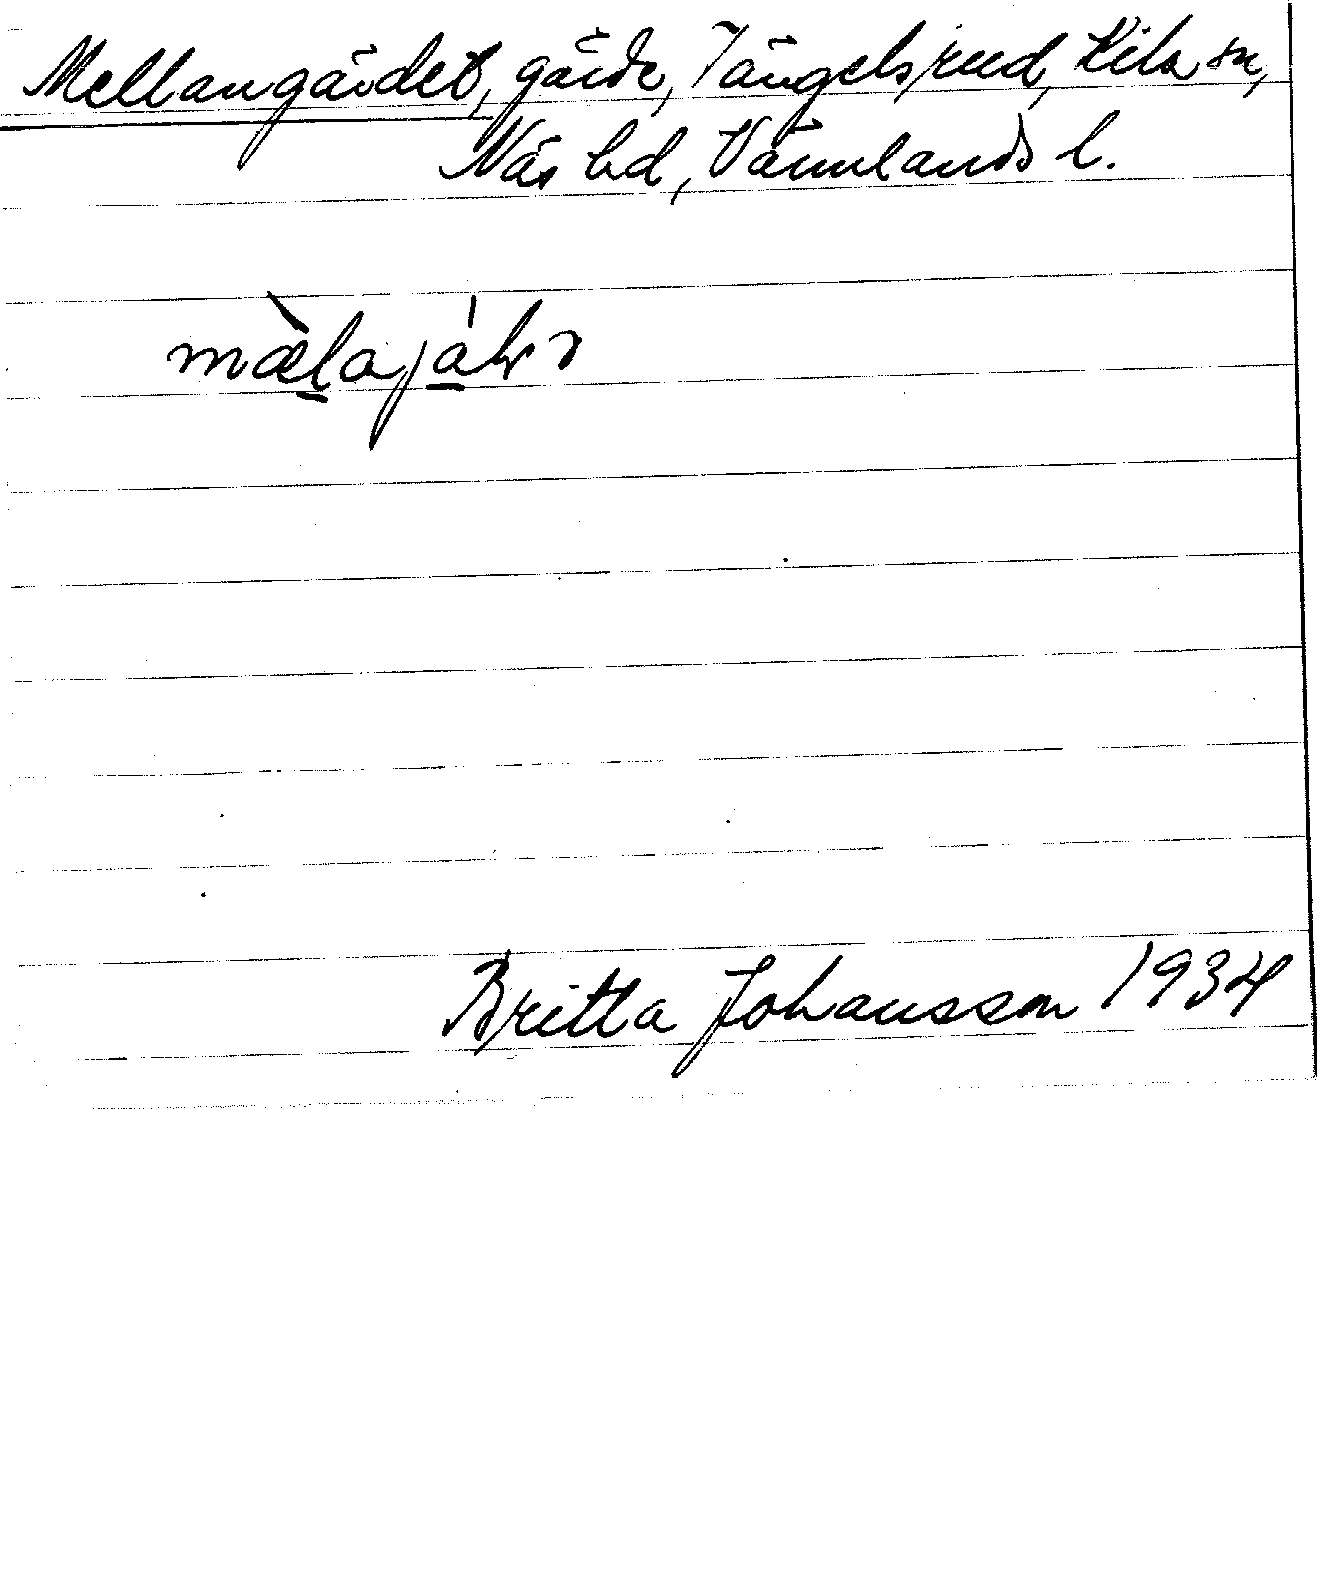 Mellangärdet, gärde, Tängelsrud, Kila sn,
Näs hd, Värmlands l.
Britta Johansson 1934